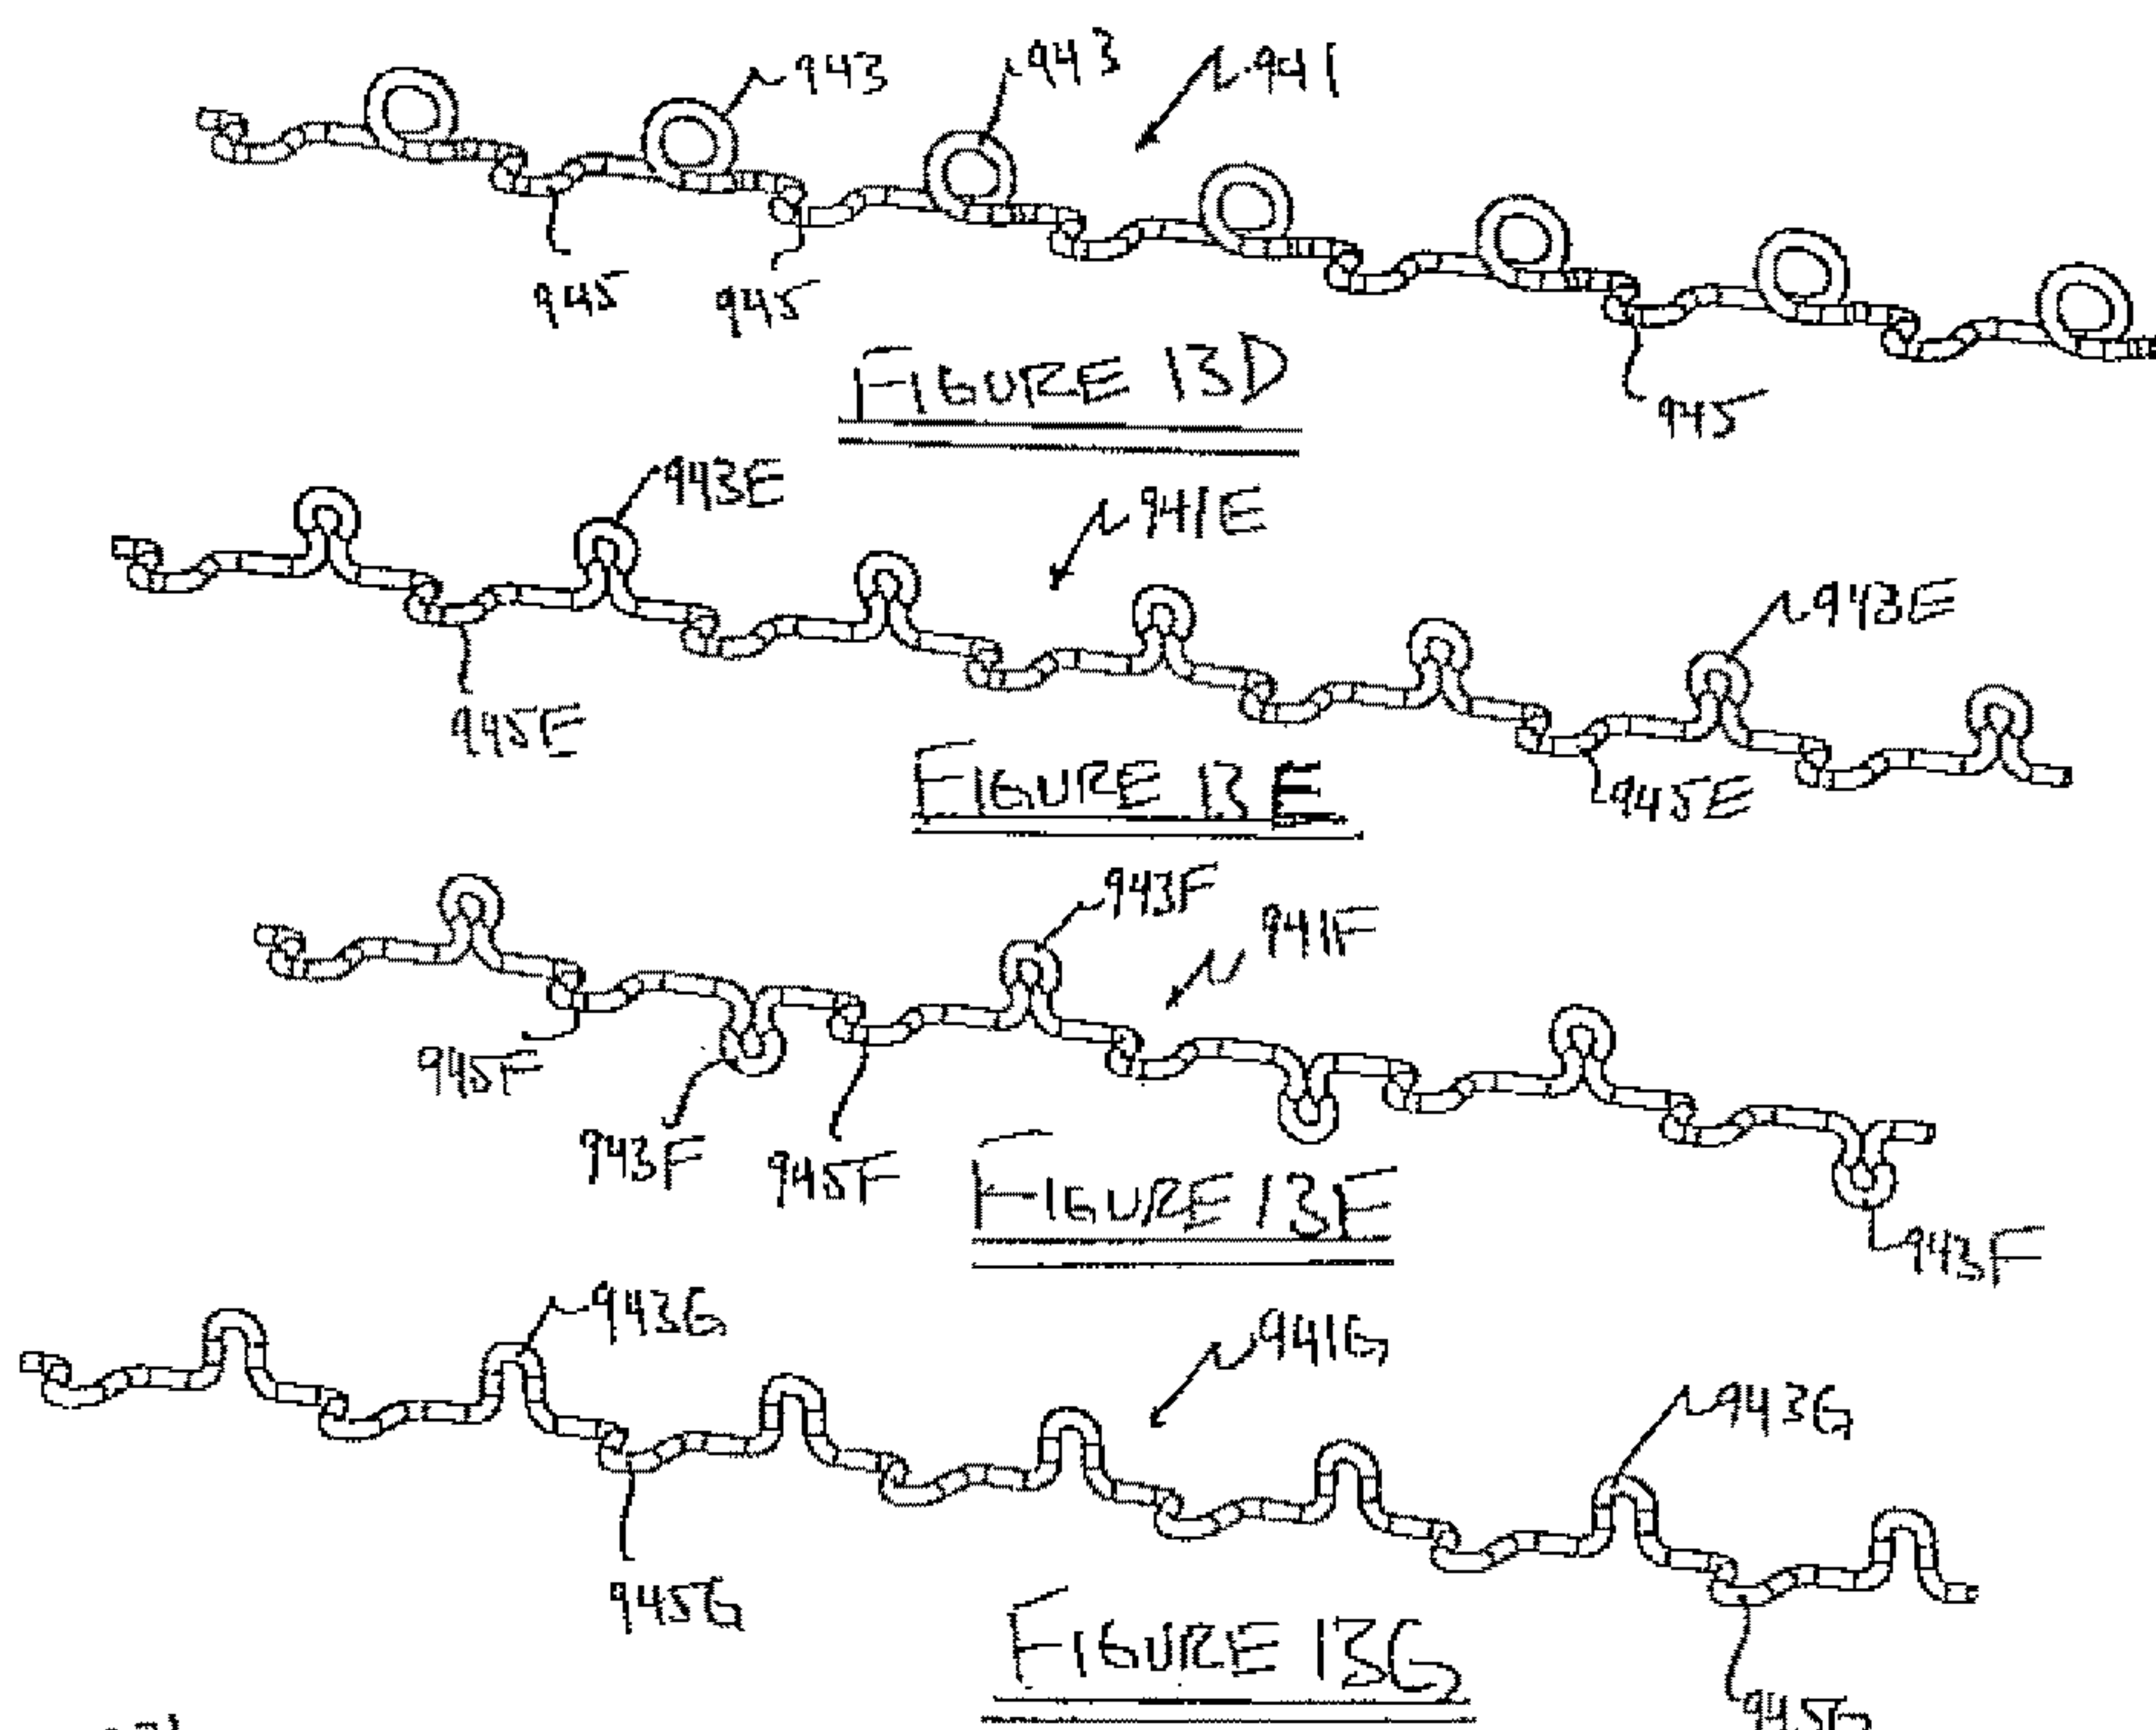 943 943 941
945 945
FIGURE 13D
945
943E
941E
943E
945E
FIGURE 13E
945E
943F
941F
945F
943F 945F
FIGURE 13F
943F
943G
941G
943G
945G
FIGURE 13G
945G